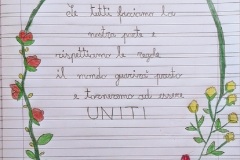 Se tutti facciamo la
nostra parte e
rispettiamo le regole
il mondo guarirà presto
e torneremo ad essere
UNITI